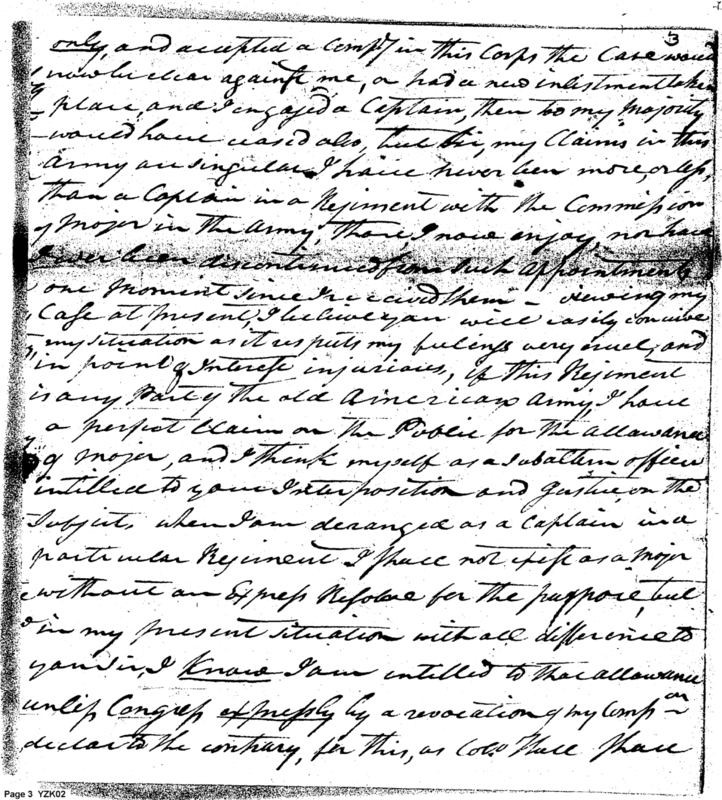 3
only, and accepted a Compy in this Corps the Case would
now be clear against me, or had a new inlistment taken
place, and I engaged a Captain, then too my Majority
would have ceased also, but Sir, my Claims in this
Army are singular I have never been more, or less,
than a Captain in a Rejiment with the Commission
of Major in the Army, those, I now enjoy, nor have
I ever been discontinued from such appointments
one Moment since I received them - viewing my
Case at present, I believe you will easily conceive
my situation as it respects my feelings very cruel, and
in point of Interest injurious, if this Rejiment
is any Part of the old American Army, I have
a perfect Claim on the Public for the allowance
of Major, and I think myself as a Subaltern officer
intilled to your Interposition and Justice, on the
Subject, when I am deranged as a Captain in a
particular Rejiment I shall not exist as a Major
without an Express Resolve for the purpose, but
in my present situation with all difference to
you Sir, I Know I am intilled to that allowance
unless Congress expressly by a revocation of my Compn
declar to the contrary, for this, as Colo Hull shall
Page 3 YZK02